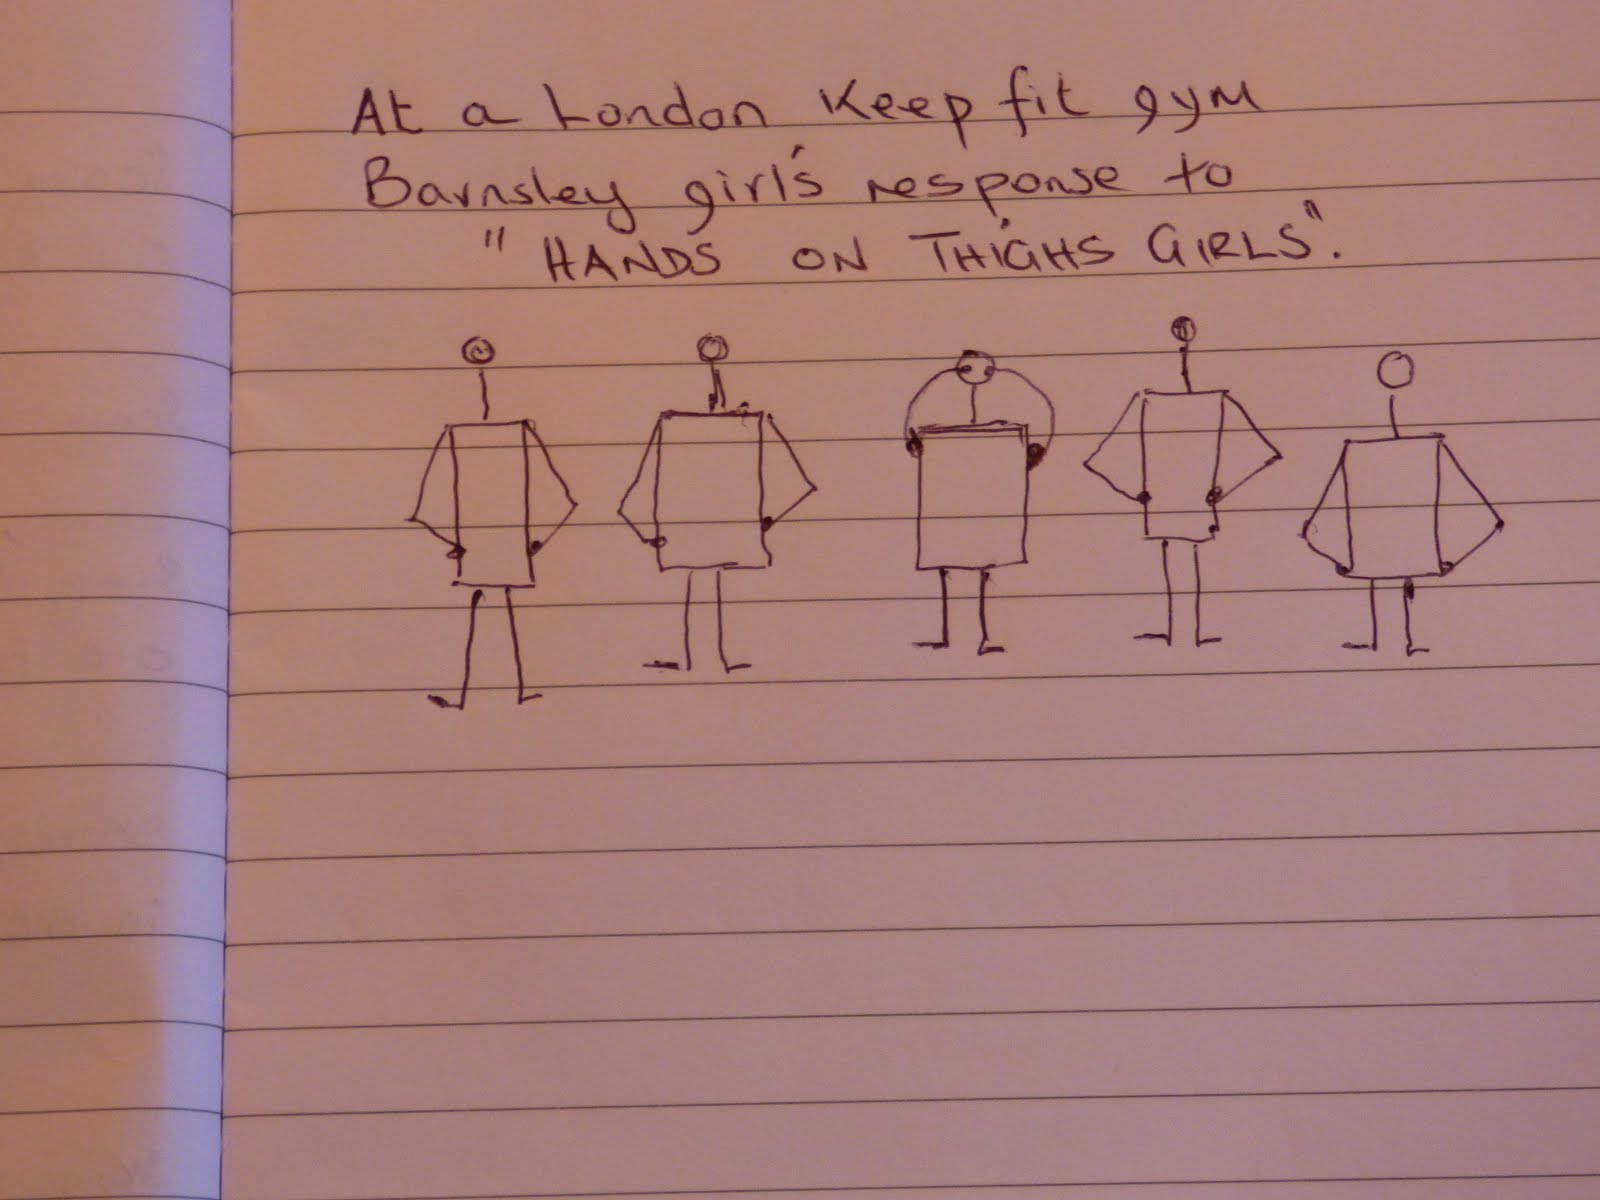 At a London Keep fit gym
Barnsley girl's response to
"HANDS ON THIGHS GIRLS".